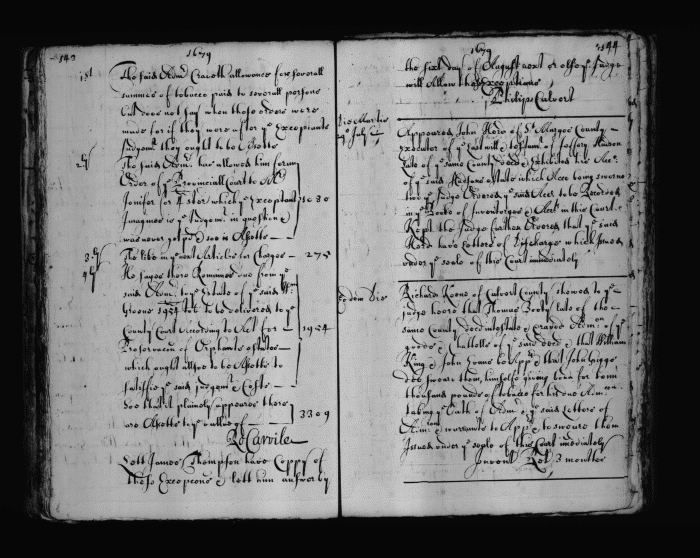 143
1679
1st
The said Adm^r Craveth allowance for severall
summes of tobacco paid to severall persons
but does not say when those orders were
made for if they were after y^e Exceptants
Judgem^t they ought to be Assetts
2^dly
The said Adm^r. has allowed him
Order of y^e Provinciall Court to
Jenifer for which y^e Exceptant
Imagines is y^e Judgem^t in question &
was never & soe is Assetts
1030
3^dly
The like in y^e next Article for Charges
275
4^thly
He sayes there Remaines due from y^e
said Adm^r. to y^e Estate of y^e said W^m
Groome 1954 to be delivered to y^e
County Court According to Act for
1954
Preservacon of Orphants estates
which ought allsoe to be Assetts to
satisfie y^e said Judgem^t & Costs
Soe that it plainely appeares there
are Assetts to y^e value of
3309
Ro Carvile
Lett James Thompson have Coppy of
these Excepcons & lett him answer by
1679
144
the first day of August next or else y^e Judge
will Allow the Exceptions
Philip Calvert
Die Martis
29^o July
Appeared John Herd of S^t Maryes County
executor of y^e last will & testam^t of
late of y^e same County deced & exhibited his Acc^t
of y^e said estate which Acc^t being sworne
to y^e Judge Ordered y^e said Acc^t to be Recorded
in y^e Booke of Inventoryes & Acc^ts in this Court
Kept the Judge further Ordered that y^e said
Herd have letters of Discharge which Issued
under y^e seale of this Court imediately
Eodem Die
Richard Keene of Calvert County shewed to y^e
Judge heere that Thomas Brooke late of the
same County deced intestate & craved Adm^con of y^e
goods & chattells of y^e said deced & that William
King & John Evans be App^rs & that John Griggs
doe sweare them, himselfe giving bond for
thousand pounds of tobacco for his due Adm^con
taking y^e Oath of Adm^r y^e said letters of
Adm^con & warrants to App^r & to sweare them
Issued under y^e seale of this Court imediately
Invent^y Ret 3 months